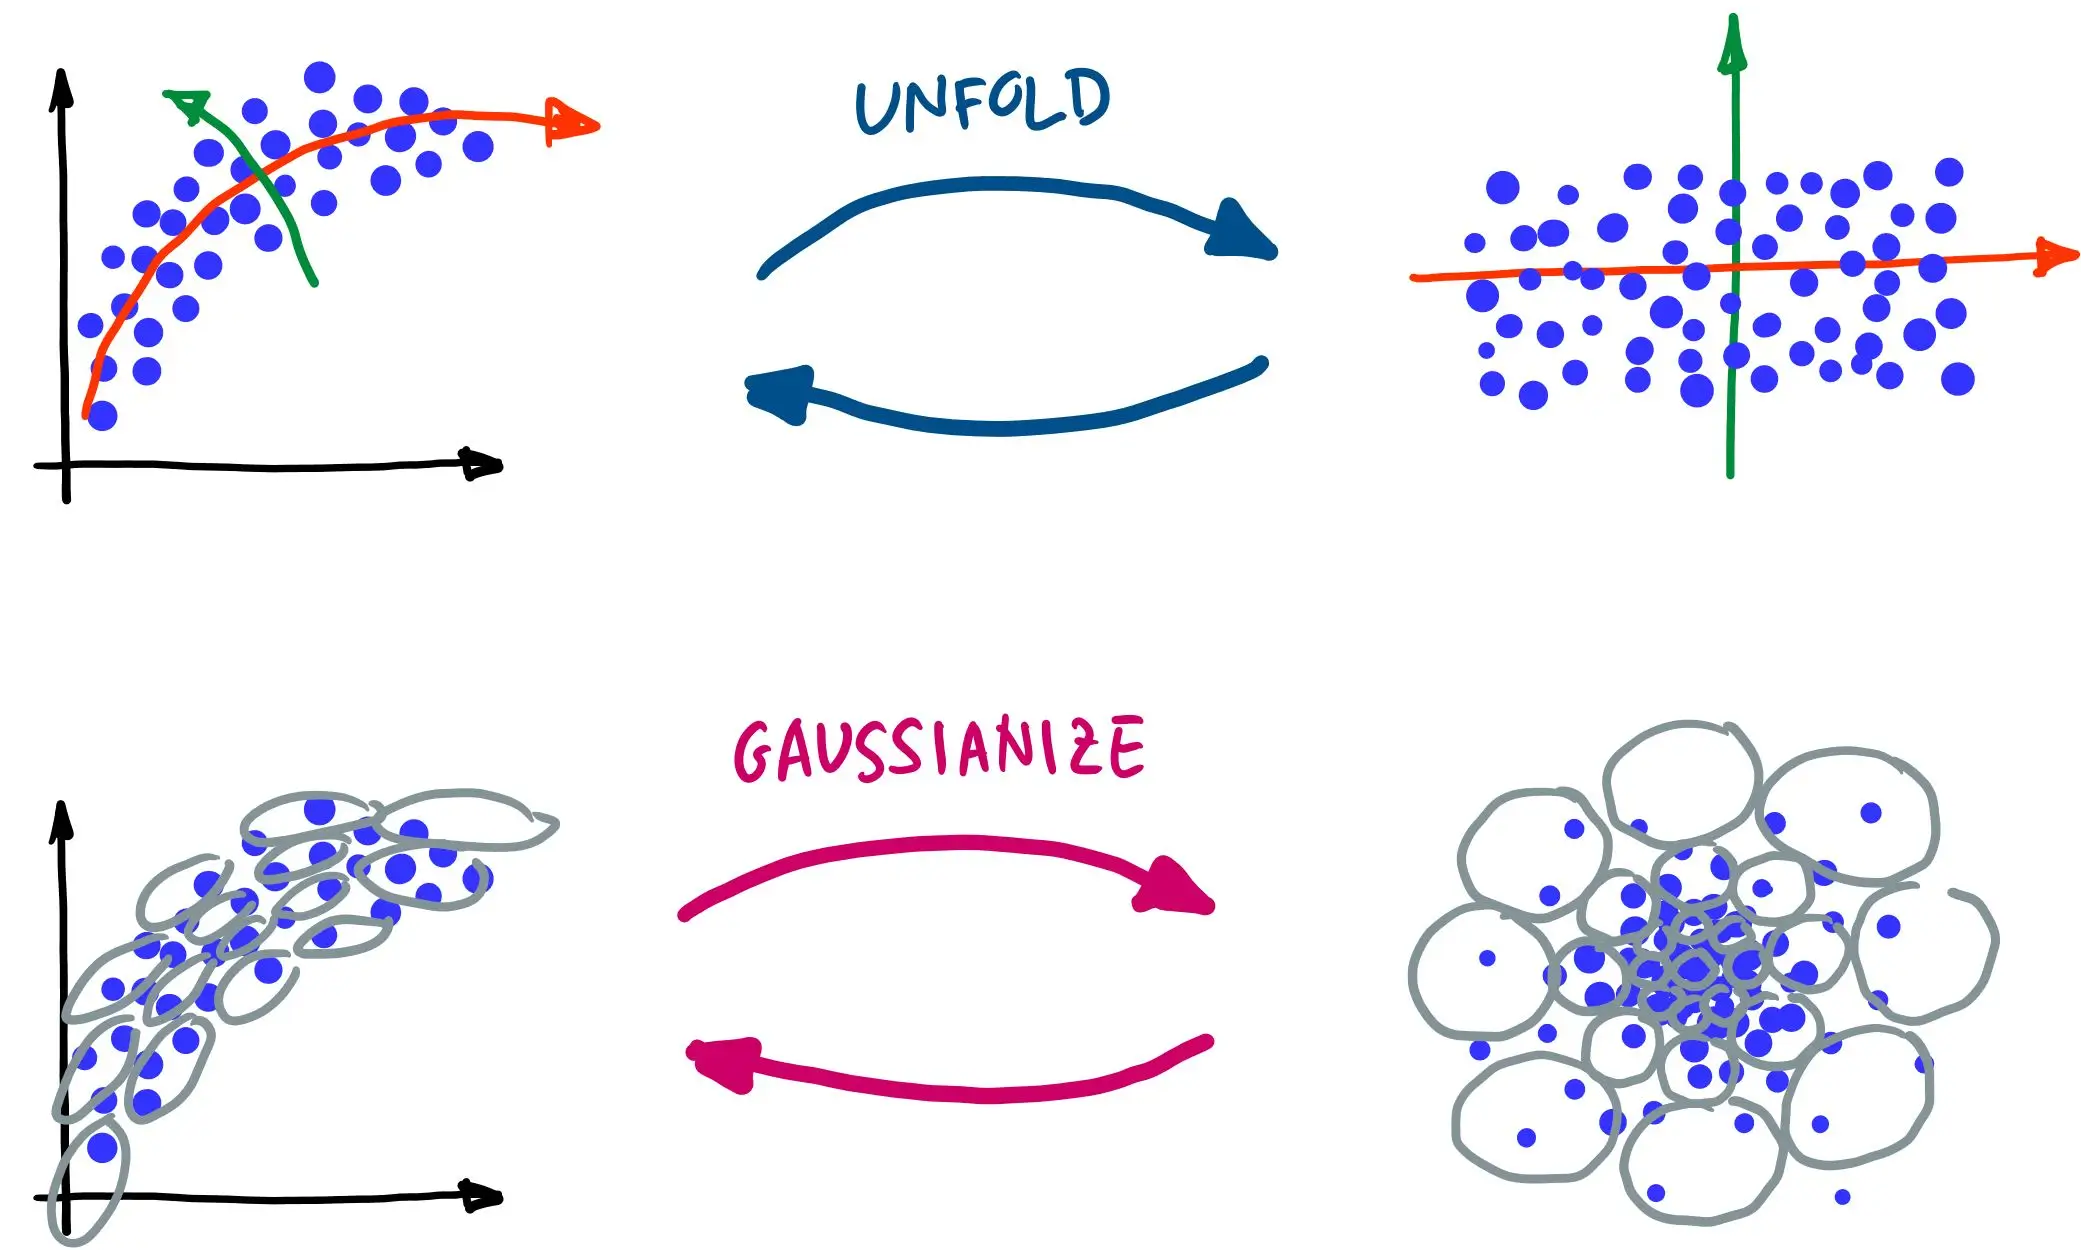 UNFOLD
GAUSSIANIZE